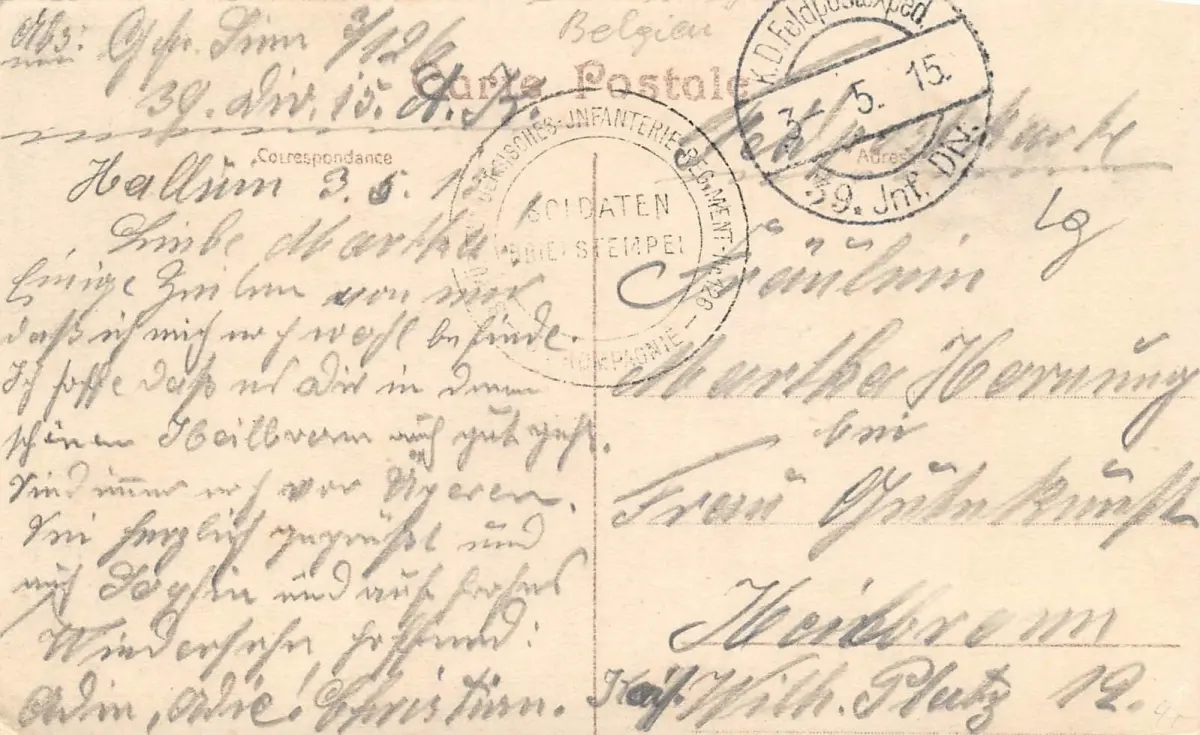 Abs: Gefr. Linn 3/126
39. Div. 15. A. K.
Belgien
Carte Postale
Feldpostkarte
K.D. Feldpostexped.
3 5. 15.
39. Inf. DIV.
Correspondance
Adresse
INFANTERIE-REGIMENT No 126
KOMPAGNIE
SOLDATEN
BRIEFSTEMPEL
3. 5. 15
Liebe Martha
Einige Zeilen von mir
daß ich mich noch wohl befinde.
Ich hoffe daß es Dir in deinem
schönen Heilbronn auch gut geht.
Sind immer noch vor Ypern.
Sei herzlich gegrüßt und
auch Sophie und auf frohes
Wiedersehn hoffend:
Adie, Adie! Christian.
Fräulein
Martha Hornung
bei
Frau Gutekunst
Heilbronn
Kais. Wilh. Platz 12.